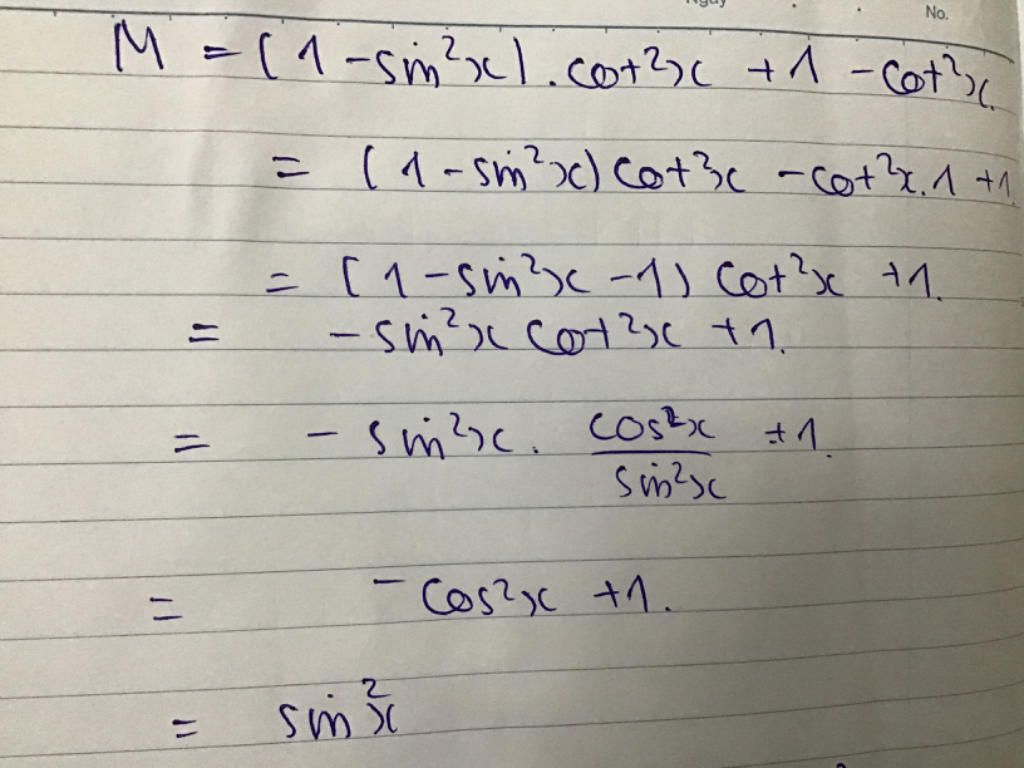 Ngày
No.
M = (1 - sin²x). cot²x + 1 - cot²x.
= (1 - sin²x) cot²x - cot²x.1 + 1.
= (1 - sin²x - 1) cot²x + 1.
= - sin²x cot²x + 1.
= - sin²x. cos²x / sin²x + 1.
= - cos²x + 1.
= sin²x